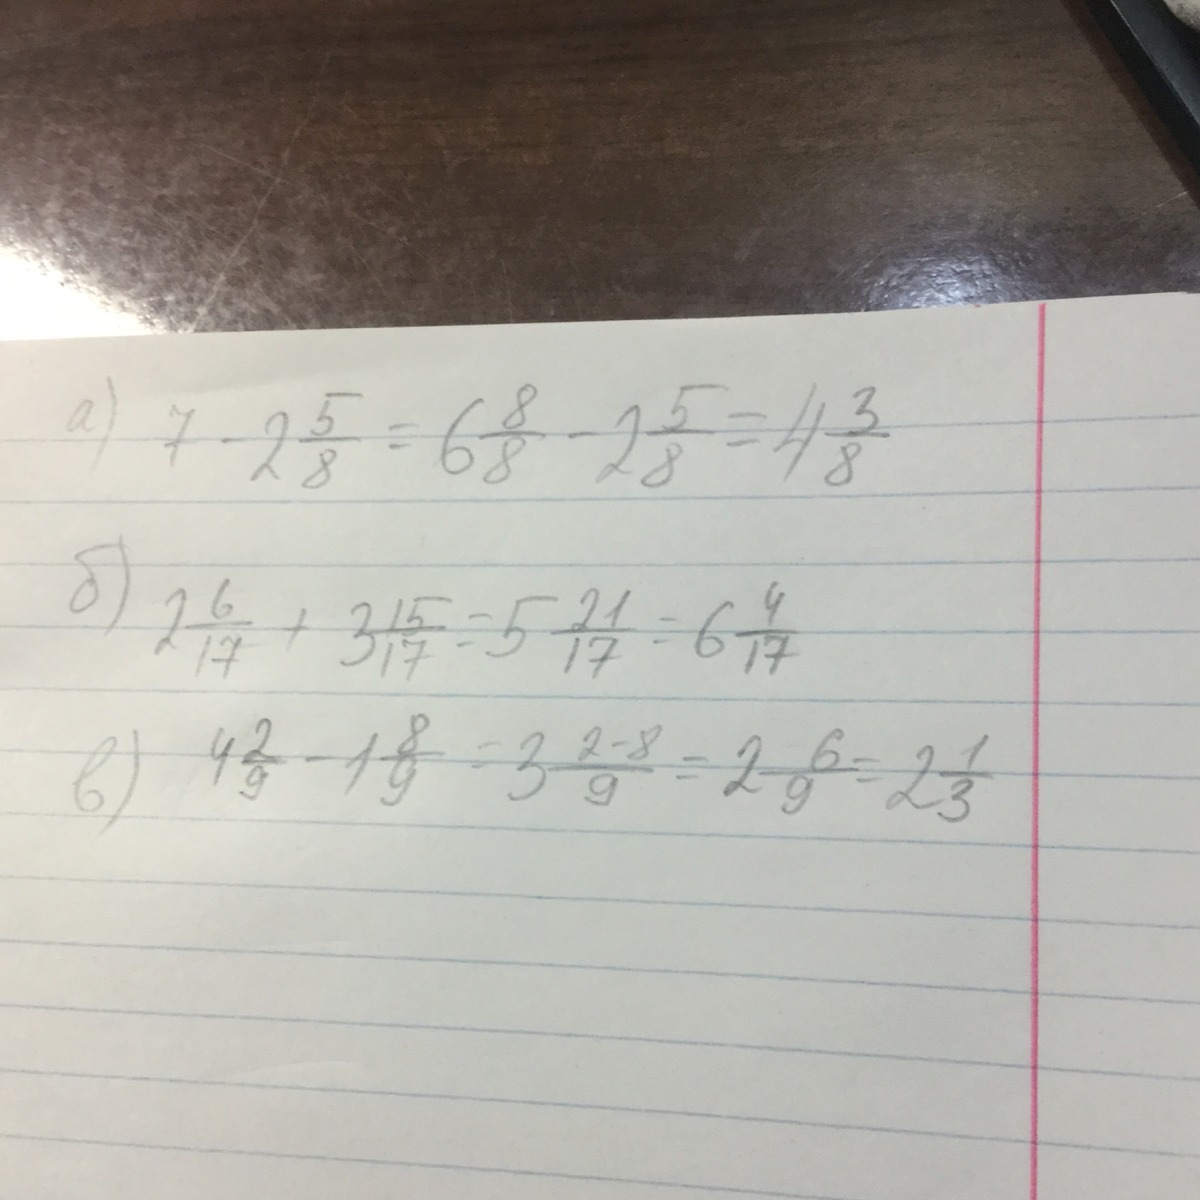 а) 7 - 2 5/8 = 6 8/8 - 2 5/8 = 4 3/8
б) 2 6/17 + 3 15/17 = 5 21/17 = 6 4/17
в) 4 2/9 - 1 8/9 = 3 2-8/9 = 2 6/9 = 2 1/3